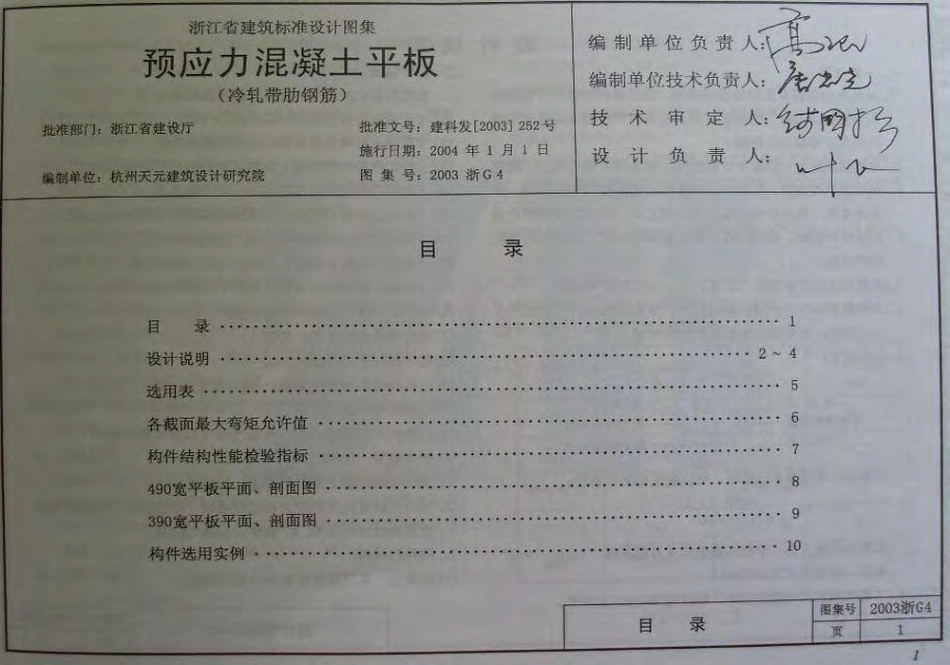 浙江省建筑标准设计图集
预应力混凝土平板
（冷轧带肋钢筋）
批准部门：浙江省建设厅
批准文号：建科发[2003] 252号
施行日期：2004 年 1 月 1 日
编制单位：杭州天元建筑设计研究院
图 集 号：2003 浙G4
编制单位负责人：
编制单位技术负责人：
技 术 审 定 人：
设 计 负 责 人：
目 录
目 录 ································ 1
设计说明 ································ 2 ~ 4
选用表 ································ 5
各截面最大弯矩允许值 ································ 6
构件结构性能检验指标 ································ 7
490宽平板平面、剖面图 ································ 8
390宽平板平面、剖面图 ································ 9
构件选用实例 ································ 10
目 录
图集号 2003浙G4
页 1
1